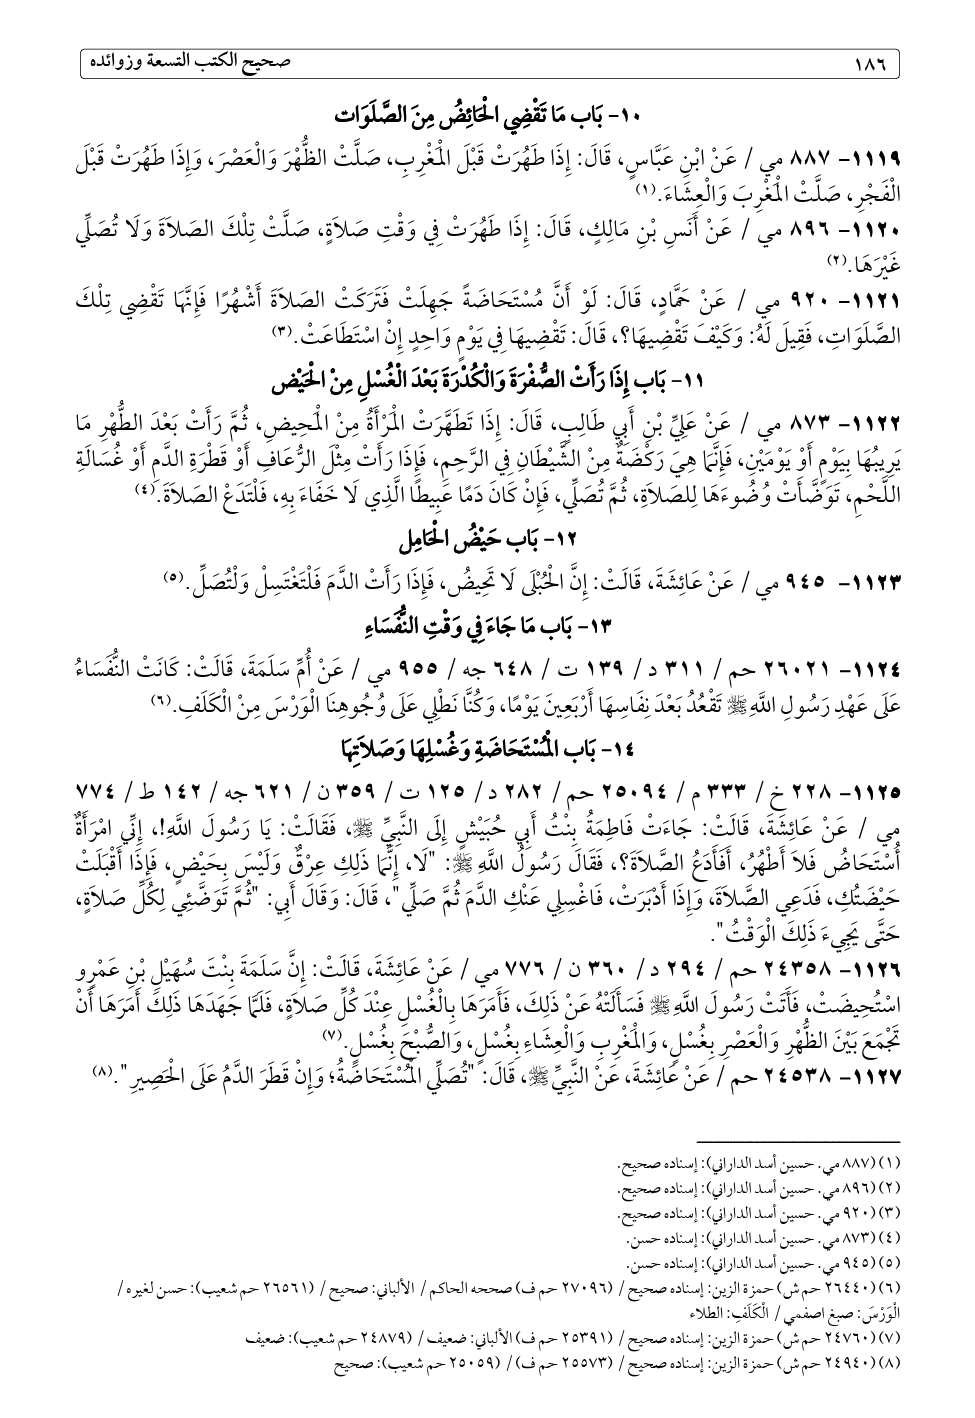 ١٨٦ صحيح الكتب التسعة وزوائده
١٠- بَاب مَا تَقْضِي الْحَائِضُ مِنَ الصَّلَوَات
١١١٩- ٨٨٧ مي / عَنْ ابْنِ عَبَّاسٍ، قَالَ: إِذَا طَهُرَتْ قَبْلَ الْمَغْرِبِ، صَلَّتْ الظُّهْرَ وَالْعَصْرَ، وَإِذَا طَهُرَتْ قَبْلَ
الْفَجْرِ، صَلَّتْ الْمَغْرِبَ وَالْعِشَاءَ.(١)
١١٢٠- ٨٩٦ مي / عَنْ أَنَسِ بْنِ مَالِكٍ، قَالَ: إِذَا طَهُرَتْ فِي وَقْتِ صَلَاةٍ، صَلَّتْ تِلْكَ الصَلَاةَ وَلَا تُصَلِّي
غَيْرَهَا.(٢)
١١٢١- ٩٢٠ مي / عَنْ حَمَّادٍ، قَالَ: لَوْ أَنَّ مُسْتَحَاضَةً جَهِلَتْ فَتَرَكَتْ الصَلاَةَ أَشْهُرًا فَإِنَّهَا تَقْضِي تِلْكَ
الصَّلَوَاتِ، فَقِيلَ لَهُ: وَكَيْفَ تَقْضِيهَا؟، قَالَ: تَقْضِيهَا فِي يَوْمٍ وَاحِدٍ إِنْ اسْتَطَاعَتْ.(٣)
١١- بَاب إِذَا رَأَتْ الصُّفْرَةَ وَالْكُدْرَةَ بَعْدَ الْغُسْلِ مِنْ الْحَيْض
١١٢٢- ٨٧٣ مي / عَنْ عَلِيِّ بْنِ أَبِي طَالِبٍ، قَالَ: إِذَا تَطَهَّرَتْ الْمَرْأَةُ مِنْ الْمَحِيضِ، ثُمَّ رَأَتْ بَعْدَ الطُّهْرِ مَا
يَرِيبُهَا بِيَوْمٍ أَوْ يَوْمَيْنِ، فَإِنَّمَا هِيَ رَكْضَةٌ مِنْ الشَّيْطَانِ فِي الرَّحِمِ، فَإِذَا رَأَتْ مِثْلَ الرُّعَافِ أَوْ قَطْرَةِ الدَّمِ أَوْ غُسَالَةِ
اللَّحْمِ، تَوَضَّأَتْ وُضُوءَهَا لِلصَلاَةِ، ثُمَّ تُصَلِّي، فَإِنْ كَانَ دَمًا عَبِيطًا الَّذِي لَا خَفَاءَ بِهِ، فَلْتَدَعْ الصَلاَةَ.(٤)
١٢- بَاب حَيْضُ الْحَامِل
١١٢٣- ٩٤٥ مي / عَنْ عَائِشَةَ، قَالَتْ: إِنَّ الْحُبْلَى لَا تَحِيضُ، فَإِذَا رَأَتْ الدَّمَ فَلْتَغْتَسِلْ وَلْتُصَلِّ.(٥)
١٣- بَاب مَا جَاءَ فِي وَقْتِ النُّفَسَاءِ
١١٢٤- ٢٦٠٢١ حم / ٣١١ د / ١٣٩ ت / ٦٤٨ جه / ٩٥٥ مي / عَنْ أُمِّ سَلَمَةَ، قَالَتْ: كَانَتْ النُّفَسَاءُ
عَلَى عَهْدِ رَسُولِ اللَّهِ ﷺ تَقْعُدُ بَعْدَ نِفَاسِهَا أَرْبَعِينَ يَوْمًا، وَكُنَّا نَطْلِي عَلَى وُجُوهِنَا الْوَرْسَ مِنْ الْكَلَفِ.(٦)
١٤- بَاب الْمُسْتَحَاضَةِ وَغُسْلِهَا وَصَلاَتِهَا
١١٢٥- ٢٢٨ خ / ٣٣٣ م / ٢٥٠٩٤ حم / ٢٨٢ د / ١٢٥ ت / ٣٥٩ ن / ٦٢١ جه / ١٤٢ ط / ٧٧٤
مي / عَنْ عَائِشَةَ، قَالَتْ: جَاءَتْ فَاطِمَةُ بِنْتُ أَبِي حُبَيْشٍ إِلَى النَّبِيِّ ﷺ، فَقَالَتْ: يَا رَسُولَ اللَّهِ!، إِنِّي امْرَأَةٌ
أُسْتَحَاضُ فَلاَ أَطْهُرُ، أَفَأَدَعُ الصَّلَاةَ؟، فَقَالَ رَسُولُ اللَّهِ ﷺ: "لَا، إِنَّمَا ذَلِكِ عِرْقٌ وَلَيْسَ بِحَيْضٍ، فَإِذَا أَقْبَلَتْ
حَيْضَتُكِ، فَدَعِي الصَّلاَةَ، وَإِذَا أَدْبَرَتْ، فَاغْسِلِي عَنْكِ الدَّمَ ثُمَّ صَلِّي"، قَالَ: وَقَالَ أَبِي: "ثُمَّ تَوَضَّئِي لِكُلِّ صَلاَةٍ،
حَتَّى يَجِيءَ ذَلِكَ الْوَقْتُ".
١١٢٦- ٢٤٣٥٨ حم / ٢٩٤ د / ٣٦٠ ن / ٧٧٦ مي / عَنْ عَائِشَةَ، قَالَتْ: إِنَّ سَلَمَةَ بِنْتَ سُهَيْلِ بْنِ عَمْرٍو
اسْتُحِيضَتْ، فَأَتَتْ رَسُولَ اللَّهِ ﷺ فَسَأَلَتْهُ عَنْ ذَلِكَ، فَأَمَرَهَا بِالْغُسْلِ عِنْدَ كُلِّ صَلاَةٍ، فَلَمَّا جَهَدَهَا ذَلِكَ أَمَرَهَا أَنْ
تَجْمَعَ بَيْنَ الظُّهْرِ وَالْعَصْرِ بِغُسْلٍ، وَالْمَغْرِبِ وَالْعِشَاءِ بِغُسْلٍ، وَالصُّبْحَ بِغُسْلٍ.(٧)
١١٢٧- ٢٤٥٣٨ حم / عَنْ عَائِشَةَ، عَنْ النَّبِيِّ ﷺ، قَالَ: "تُصَلِّي الْمُسْتَحَاضَةُ؛ وَإِنْ قَطَرَ الدَّمُ عَلَى الْحَصِيرِ".(٨)
(١) (٨٨٧ مي. حسين أسد الداراني): إسناده صحيح.
(٢) (٨٩٦ مي. حسين أسد الداراني): إسناده صحيح.
(٣) (٩٢٠ مي. حسين أسد الداراني): إسناده صحيح.
(٤) (٨٧٣ مي. حسين أسد الداراني): إسناده حسن.
(٥) (٩٤٥ مي. حسين أسد الداراني): إسناده حسن.
(٦) (٢٦٤٤٠ حم ش) حمزة الزين: إسناده صحيح / (٢٧٠٩٦ حم ف) صححه الحاكم / الألباني: صحيح / (٢٦٥٦١ حم شعيب): حسن لغيره /
الْوَرْسَ: صبغ اصفمي / الْكَلَفِ: الطلاء
(٧) (٢٤٧٦٠ حم ش) حمزة الزين: إسناده صحيح / (٢٥٣٩١ حم ف) الألباني: ضعيف / (٢٤٨٧٩ حم شعيب): ضعيف
(٨) (٢٤٩٤٠ حم ش) حمزة الزين: إسناده صحيح / (٢٥٥٧٣ حم ف) / (٢٥٠٥٩ حم شعيب): صحيح